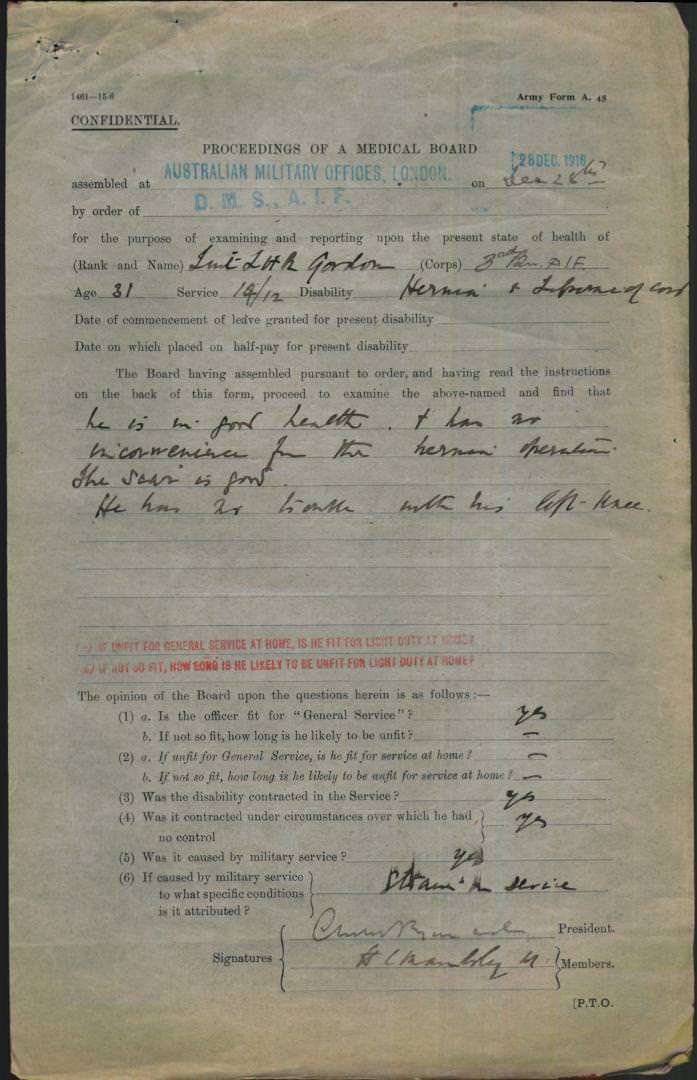 1461—15-6
Army Form A. 45
CONFIDENTIAL.
PROCEEDINGS OF A MEDICAL BOARD
28 DEC. 1916
assembled at AUSTRALIAN MILITARY OFFICES, LONDON. on Dec 28th
D. M. S., A. I. F.
by order of
for the purpose of examining and reporting upon the present state of health of
(Rank and Name) Gordon (Corps) 3rd Bn. AIF
Age 31 Service /12 Disability Hernia & of cord
Date of commencement of leave granted for present disability
Date on which placed on half-pay for present disability
The Board having assembled pursuant to order, and having read the instructions
on the back of this form, proceed to examine the above-named and find that
he is in good health. & has no
inconvenience from the hernia operation.
The scar is good.
He has no trouble with his left knee.
IF UNFIT FOR GENERAL SERVICE AT HOME, IS HE FIT FOR LIGHT DUTY AT HOME?
IF NOT SO FIT, HOW LONG IS HE LIKELY TO BE UNFIT FOR LIGHT DUTY AT HOME?
The opinion of the Board upon the questions herein is as follows :—
(1) a. Is the officer fit for "General Service"? yes
b. If not so fit, how long is he likely to be unfit? —
(2) a. If unfit for General Service, is he fit for service at home? —
b. If not so fit, how long is he likely to be unfit for service at home? —
(3) Was the disability contracted in the Service? yes
(4) Was it contracted under circumstances over which he had yes
no control
(5) Was it caused by military service? yes
(6) If caused by military service
to what specific conditions Strain in service
is it attributed?
President.
Signatures
Members.
[P.T.O.